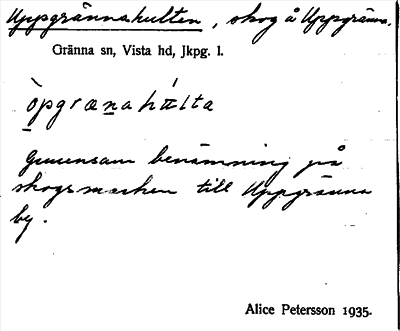 Uppgrännahulten, skog å Uppgränna.
Gränna sn, Vista hd, Jkpg. l.
Gemensam benämning på
skogsmarken till Uppgränna
by.
Alice Petersson 1935.